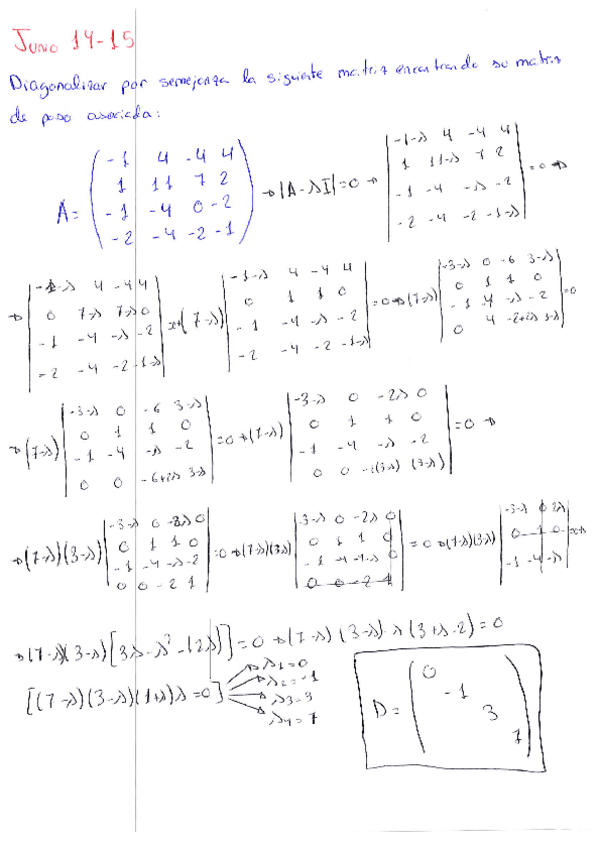 Junio 14-15
Diagonalizar por semejanza la siguiente matriz encontrando su matriz
de paso asociada:
A = ( -1 4 -4 4 ; 1 11 7 2 ; -1 -4 0 -2 ; -2 -4 -2 -1 ) → |A-λI| = 0 → | -1-λ 4 -4 4 ; 1 11-λ 7 2 ; -1 -4 -λ -2 ; -2 -4 -2 -1-λ | = 0 →
→ | -1-λ 4 -4 4 ; 0 7-λ 7-λ 0 ; -1 -4 -λ -2 ; -2 -4 -2 -1-λ | (7-λ) | -1-λ 4 -4 4 ; 0 1 1 0 ; -1 -4 -λ -2 ; -2 -4 -2 -1-λ | = 0 → (7-λ) | -3-λ 0 -6 3-λ ; 0 1 1 0 ; -1 -4 -λ -2 ; 0 4 -2+2λ 3-λ | = 0
→ (7-λ) | -3-λ 0 -6 3-λ ; 0 1 1 0 ; -1 -4 -λ -2 ; 0 0 -6+2λ 3-λ | = 0 → (7-λ) | -3-λ 0 -2λ 0 ; 0 1 1 0 ; -1 -4 -λ -2 ; 0 0 -2(3-λ) (3-λ) | = 0 →
→ (7-λ)(3-λ) | -3-λ 0 -2λ 0 ; 0 1 1 0 ; -1 -4 -λ -2 ; 0 0 -2 1 | = 0 → (7-λ)(3-λ) | -3-λ 0 -2λ 0 ; 0 1 1 0 ; -1 -4 -4-λ 0 ; 0 0 -2 1 | = 0 → (7-λ)(3-λ) | -3-λ 0 2λ ; 0 1 0 ; -1 -4 -λ | = 0 →
→ (7-λ)(3-λ)[3λ-λ²-(2λ)] = 0 → (7-λ)(3-λ)·λ(3+λ-2) = 0
[(7-λ)(3-λ)(1+λ)λ = 0]
λ1 = 0
λ2 = -1
λ3 = 3
λ4 = 7
D = ( 0 -1 3 7 )